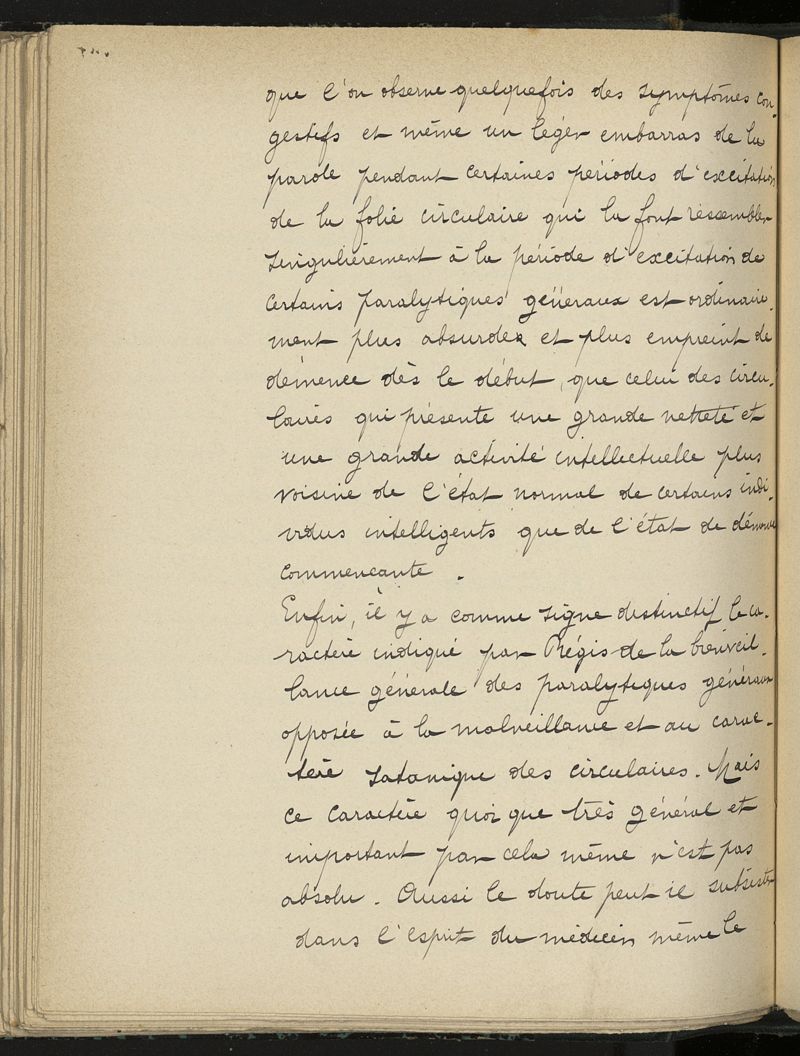 que l'on observe quelquefois des symptômes con-
gestifs et même un léger embarras de la
parole pendant certaines périodes d'excitation
de la folie circulaire qui la font ressembler
singulièrement à la période d'excitation de
certains paralytiques généraux est ordinaire-
ment plus absurde et plus empreint de
démence dès le début, que celui des circu-
laires qui présente une grande netteté et
une grande activité intellectuelle plus
voisine de l'état normal de certains indi-
vidus intelligents que de l'état de démence
commençante.
Enfin, il y a comme signe distinctif le ca-
ractère indiqué par Régis de la bienveil-
lance générale des paralytiques généraux
opposée à la malveillance et au carac-
tère satanique des circulaires. Mais
ce caractère quoique très général et
important par cela même n'est pas
absolu. Aussi le doute peut il subsister
dans l'esprit du médecin même le